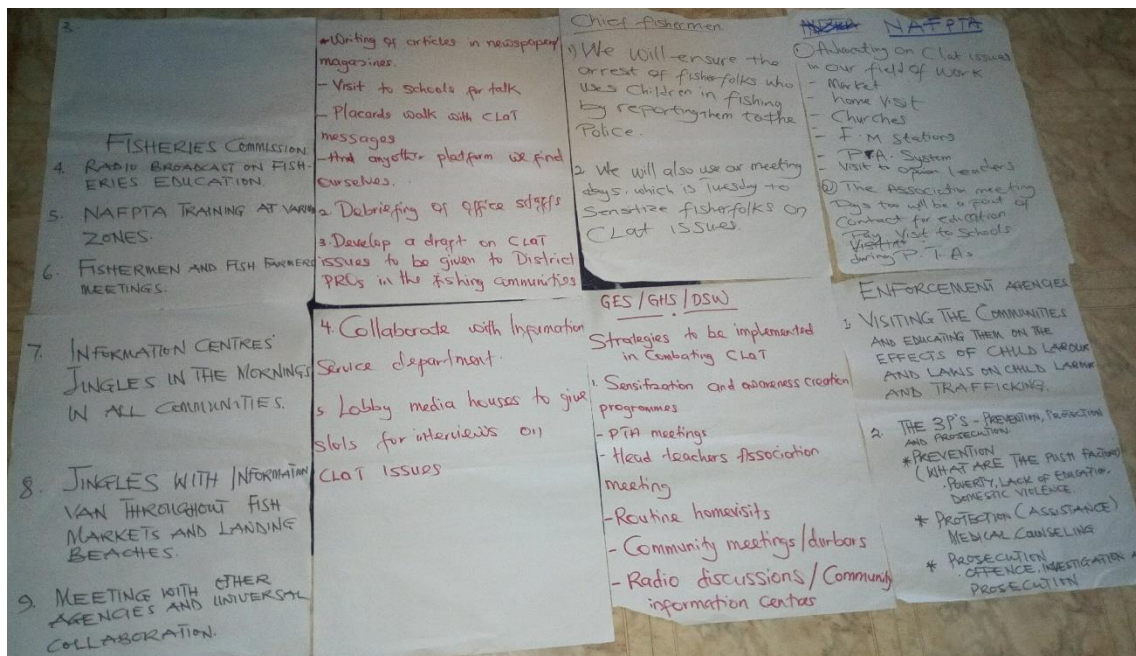 3.
FISHERIES COMMISSION
4. RADIO BROADCAST ON FISH-
ERIES EDUCATION.
5. NAFPTA TRAINING AT VARIOUS
ZONES.
6. FISHERMEN AND FISH FARMERS
MEETINGS.
7. INFORMATION CENTRES'
JINGLES IN THE MORNINGS
IN ALL COMMUNITIES.
8. JINGLES WITH INFORMATION
VAN THROUGHOUT FISH
MARKETS AND LANDING
BEACHES.
9. MEETING WITH OTHER
AGENCIES AND UNIVERSAL
COLLABORATION.
- Writing of articles in newspapers/
magazines.
- Visit to schools for talk
- Placards walk with CLaT
messages
- And anyother platform we find
ourselves.
2. Debriefing of office staffs
3. Develop a draft on CLaT
issues to be given to District
PROs in the fishing communities
4. Collaborate with Information
Service department.
5. Lobby media houses to give
slots for interviews on
CLaT ISSUES
Chief fishermen.
1) We will ensure the
arrest of fisherfolks who
uses Children in fishing
by reporting them to the
Police.
2. We will also use our meeting
days, which is Tuesday to
Sensitize fisherfolks on
CLat issues.
GES/GHS/DSW
Strategies to be implemented
in Combating CLaT
1. Sensitization and awareness creation
programmes
- PTA meetings
- Head teachers Association
meeting
- Routine homevisits
- Community meetings/durbars
- Radio discussions/Community
information centres
NAFPTA
① Advocating on Clat issues
in our field of work
- Market
- home visit
- Churches
- F.M stations
- P.A. System
- Visit to opinion leaders
② The Association meeting
Days too will be a point of
Contract for education
Pay Visit to Schools
during P.T.As
ENFORCEMENT AGENCIES
1. VISITING THE COMMUNITIES
AND EDUCATING THEM ON THE
EFFECTS OF CHILD LABOUR
AND LAWS ON CHILD LABOUR
AND TRAFFICKING.
2. THE 3P'S - PREVENTION, PROTECTION
AND PROSECUTION
* PREVENTION
(WHAT ARE THE PUSH FACTORS)
. POVERTY, LACK OF EDUCATION,
DOMESTIC VIOLENCE.
* PROTECTION (ASSISTANCE)
MEDICAL COUNSELING
* PROSECUTION
. OFFENCE, INVESTIGATION
PROSECUTION